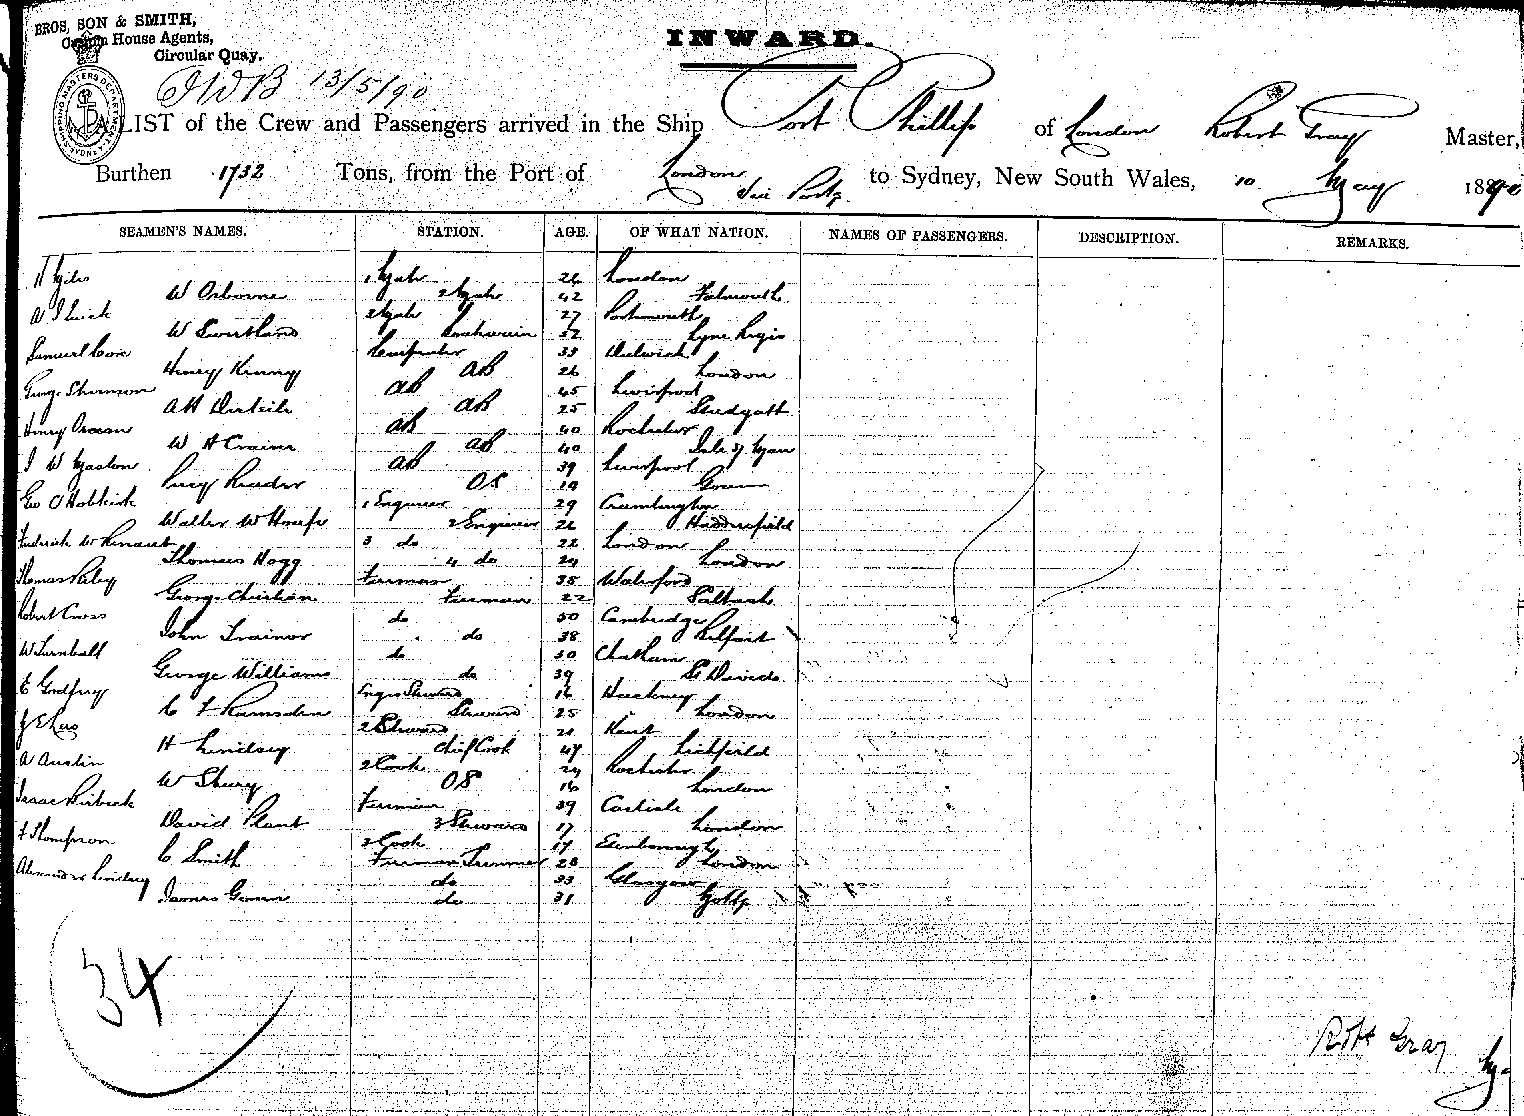 BROS, SON & SMITH,
Custom House Agents,
Circular Quay.
INWARD.
JWB 13/5/90
A LIST of the Crew and Passengers arrived in the Ship Port Phillip of London Robert Gray Master,
Burthen 1732 Tons, from the Port of London via Ports to Sydney, New South Wales, 10 May 1890
SEAMEN'S NAMES. STATION. AGE. OF WHAT NATION. NAMES OF PASSENGERS. DESCRIPTION. REMARKS.
1 Mate 26 London
W Osborne 2 Mate 42 Falmouth
3 Mate 27 Portsmouth
W Swortland 52 Lyme Regis
Samuel Carpenter 33
Henry Kenny AB 26 London
George AB 45 Liverpool
AH AB 25
Henry AB 40 Rochester
W H Craine AB 40 Isle of Man
J W Maston AB 39 Liverpool
Percy Reader OS 19
Geo O Hobkirk 1 Engineer 29 Cramlington
Walter W 2 Engineer 26 Huddersfield
Frederick W 3 do 22 London
Thomas Hogg 4 do 24 London
Thomas Fireman 35 Waterford
George Christian Fireman 22
Robert Cross do 50 Cambridge
John Trainor do 38 Belfast
W Turnbull do 30 Chatham
George Williams do 39 St Davids
E Godfrey Engrs Steward 16 Hackney
C F Ramsden Steward 25 London
2 Steward 21 Kent
H Lindsay Chief Cook 47 Lichfield
A Austin 2 Cook 24 Rochester
W OS 16 London
Isaac Fireman 39 Carlisle
David Plant 3 Steward 17 London
F Thompson 3 Cook 17 Edenborough
C Smith Fireman Trimmer 28 London
Alexander Lindsay do 33 Glasgow
James do 31
34
Robt Gray